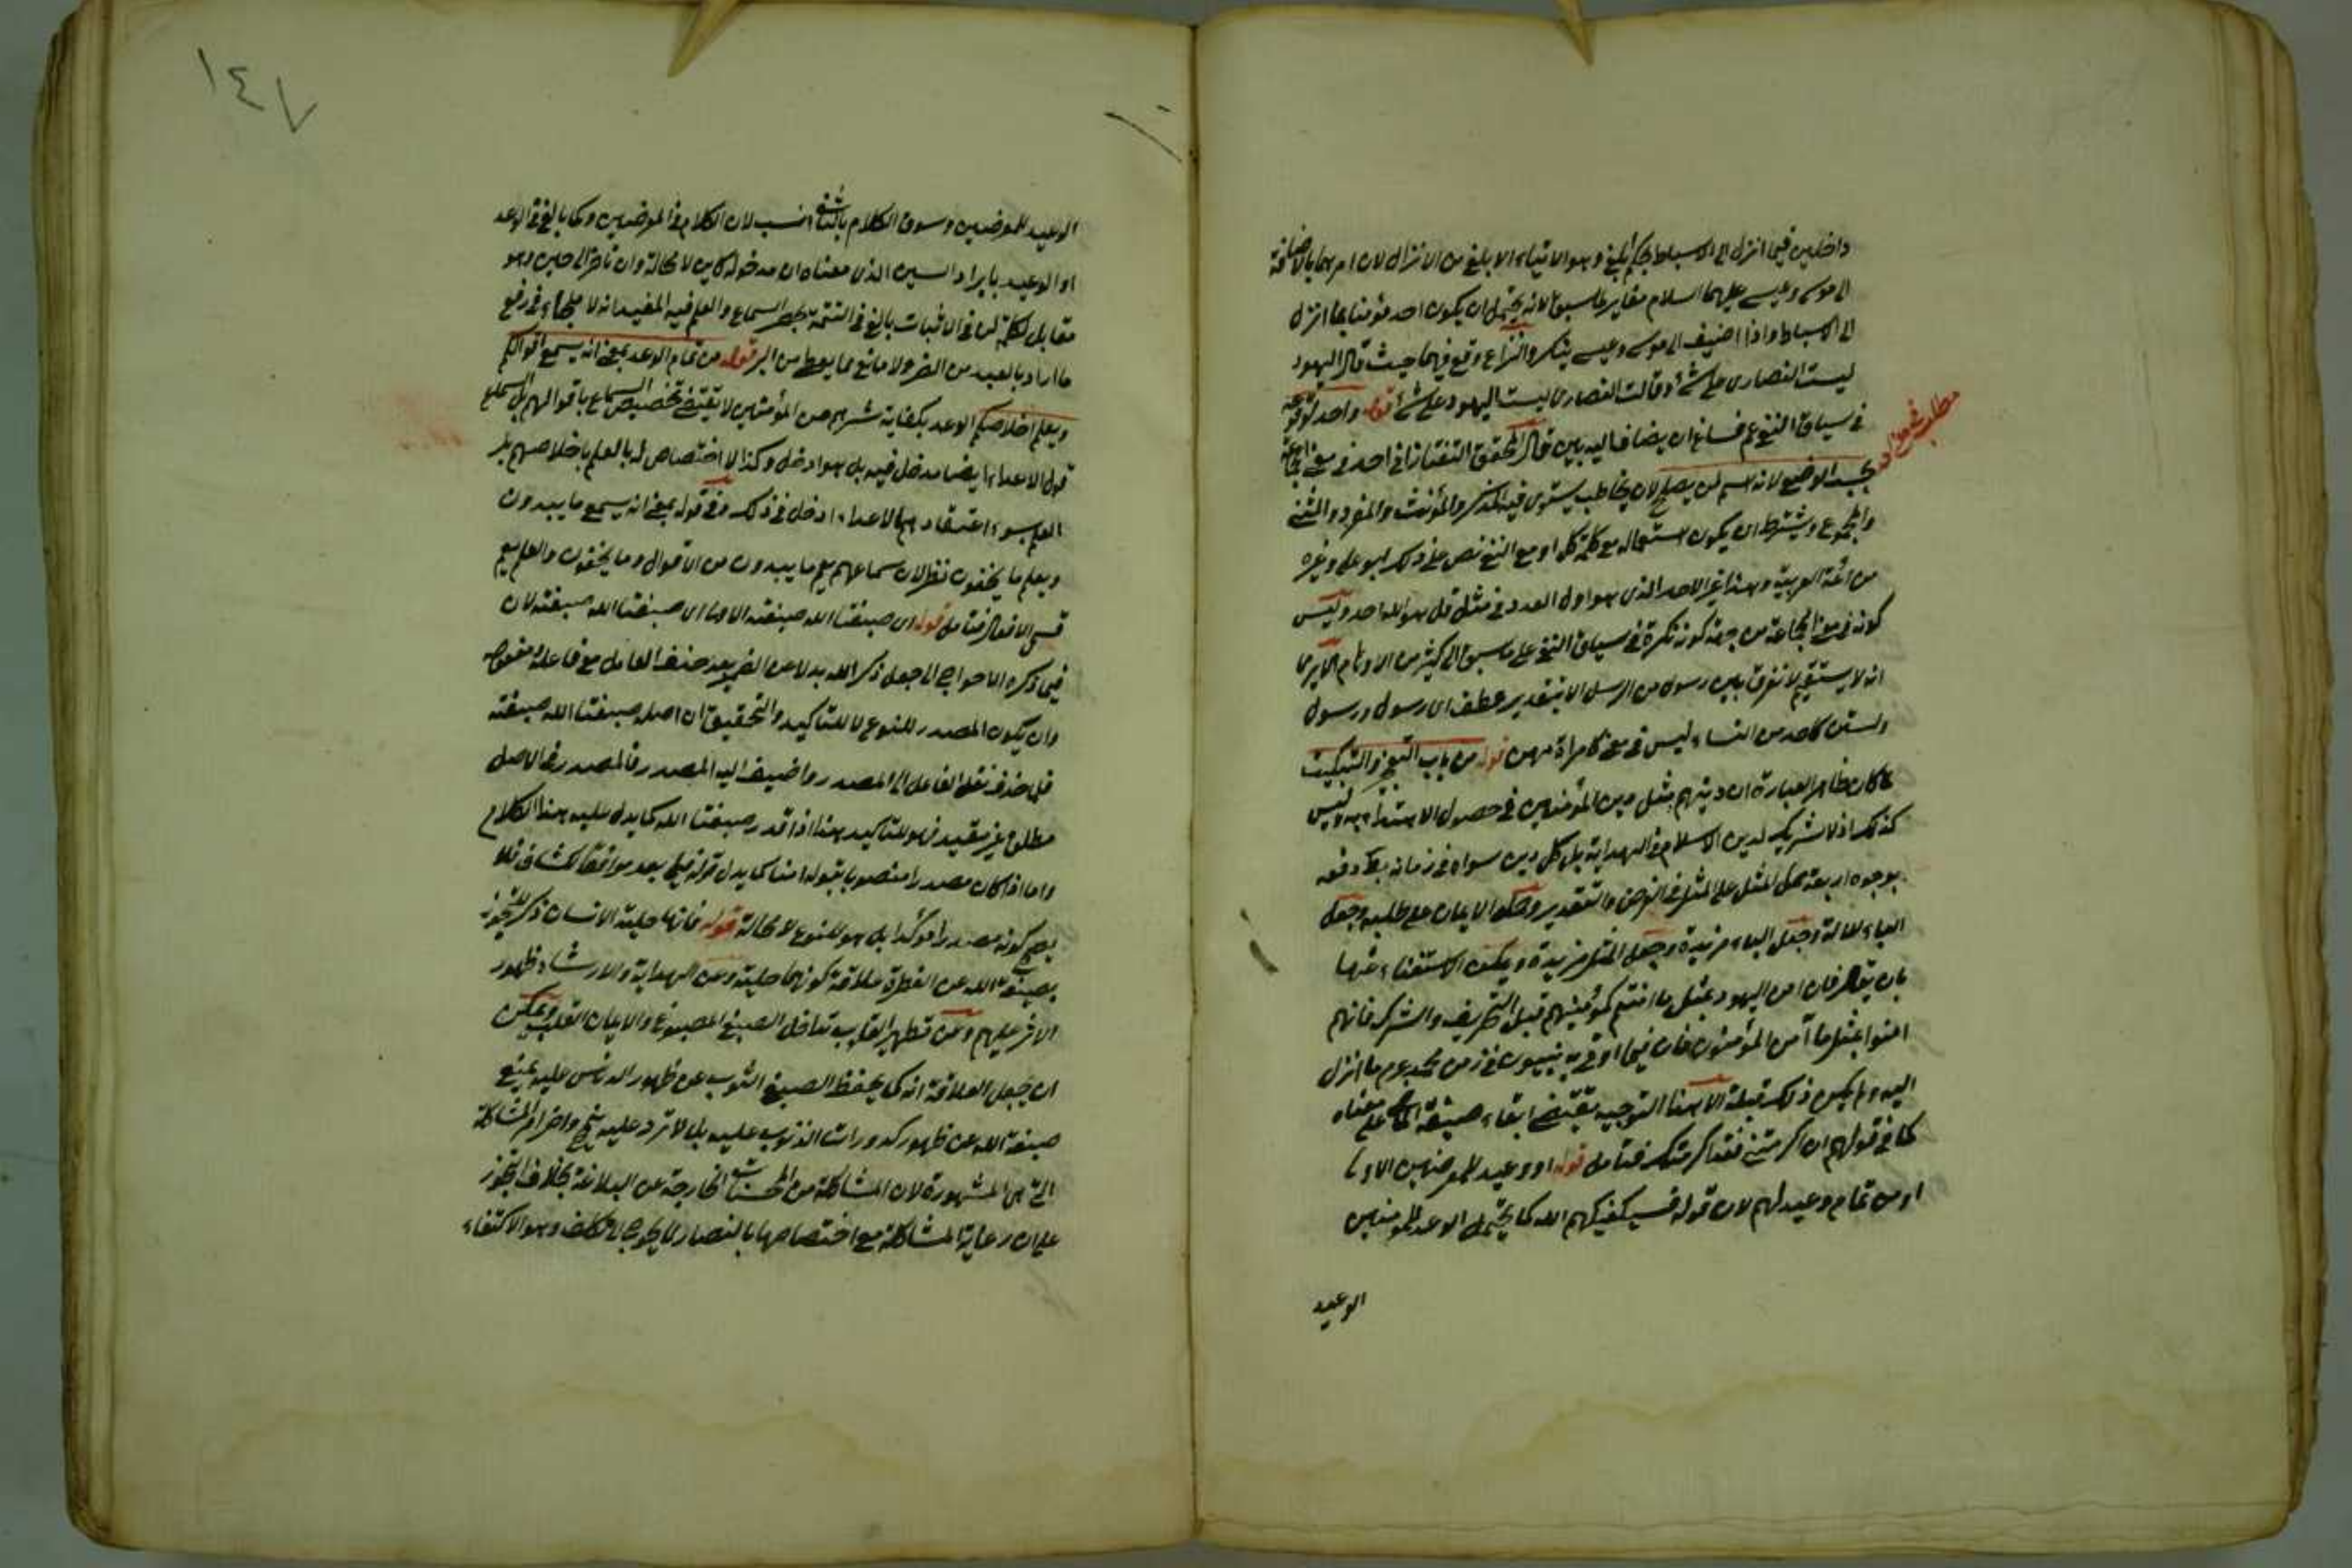 داخلين فيما انزل الى الاسباط بحكم ابلغ وهو الايتاء الابلغ من الانزال لان امرهما بالاضافة
الى موسى وعيسى عليهما السلام مغاير لما سبق لانه يحتمل ان يكون احد مؤمنا بما انزل
الى الاسباط واذا اضيف الى موسى وعيسى ينكر والنزاع وقع فيهما حيث قال اليهود
ليست النصارى على شئ وقالت النصارى ليست اليهود على شئ قوله واحد لوقوعه
في سياق النفي عم فساغ ان يضاف اليه بين قال المحقق التفتازاني احد في معنى الجماعة
بحسب الوضع لانه اسم لمن يصلح لان يخاطب يستوي فيه المذكر والمؤنث والمفرد والمثنى
والمجموع ويشترط ان يكون استعماله مع كلمة كل او مع النفي نص على ذلك ابو علي وغيره
من ائمة العربية وهذا غير الاحد الذي هو اول العدد في مثل قل هو الله احد وليس
كونه في معنى الجماعة من جهة كونه نكرة في سياق النفي على ما سبق الى كثير من الاوهام الا يرى
انه لا يستقيم لا نفرق بين رسول من الرسل الا بتقدير عطف اي رسول ورسول
ولستن كاحد من النساء ليس في معنى كامراة منهن قوله من باب التعجيز والتبكيت
لما كان ظاهر العبارة ان دينهم مثل دين المؤمنين في حصول الاهتداء به وليس
كذلك اذ لا شريك لدين الاسلام في الهداية بل كل دين سواه في زمانه بط دفعه
بوجوه اربعة حمل المثل على المثل في الفرض والتقدير وحمل الايمان على طلبه وجعل
الباء للآلة وجعل الباء مزيدة وجعل المثل مزيدة ويمكن الاستغناء عنها
بان يقال فان امن اليهود بمثل ما امنتم كمؤمنيهم قبل التحريف والشرك فانهم
امنوا بمثل ما آمن المؤمنون فان فيما اوتي به نبيون في زمن محمد عم ما انزل
اليه ولم يكن ذلك قبله الا ان هذا التوجيه يقتضي ابقاء صيغة الماضي على معناه
كما في قولهم ان اكرمتني فقد اكرمتك فتامل قوله او وعيد للمعرضين الاولى
او من تمام وعيد لهم لان قوله فسيكفيكهم الله كما يحتمل الوعد للمؤمنين
الوعيد
١٤٧
الوعيد للمعرضين وسوق الكلام بالثاني انسب لان الكلام في المعرضين وكما بالغ في الوعد
او الوعيد بايراد السين الذي معناه ان مدخوله كاين لا محالة وان تاخر الى حين وهو
مقابل لكلمة لن في الاثبات بالغ في التتمة بحصر السماع والعلم فيه المفيد انه لا ملجاء في رفع
ما اراد بالعبد من الضر ولا مانع مما يعطي من البر قوله من تمام الوعد بمعنى انه يسمع اقوالكم
ويعلم اخلاصكم الوعد بكفاية شرهم عن المؤمنين لا يقتضي تخصيص السماع باقوالهم بل لسماع
قول الاعداء ايضا مدخل فيه بل هو ادخل وكذا لا اختصاص له بالعلم باخلاصهم بل
العلم بسوء اعتقادهم الاعداء ادخل في ذلك وفي قوله بمعنى انه يسمع ما يبدون
ويعلم ما يخفون نظر لان سماعهم يعلم ما يبدون من الاقوال وما يخفون والعلم يعم
قسمي الافعال فتامل قوله اي صبغنا الله صبغته الاولى اي صبغنا الله صبغته لان
فيما ذكره الاحواج الى جعل ذكر الله بدلا من الضمير بعد حذف العامل مع فاعله ومفعوله
وان يكون المصدر للنوع لا للتاكيد والتحقيق ان اصله صبغنا الله صبغته
فلما حذف نقل الفاعل الى المصدر واضيف اليه المصدر فالمصدر في الاصل
مطلق غير مقيد فهو للتاكيد هذا اذا قدر صبغنا الله كما يدل عليه هذا الكلام
واما اذا كان مصدرا منصوبا بقوله امنا كما يدل قوله فيما بعد موافقا للكشاف فلا
يصح كونه مصدرا مؤكدا بل هو للنوع لا محالة قوله فانها حلية الانسان ذكر للتجوز
بصبغة الله عن الفطرة علاقة كونهما حلية وعن الهداية والارشاد ظهور
الاثر عليهم وعن تطهير القلب تداخل الصبغ المصبوغ والايمان القلب ويمكن
ان يجعل العلاقة انه كما يحفظ الصبغ الثوب عن ظهور الدنس عليه يمنع
صبغة الله عن ظهور كدورات الذنوب عليه بل لا ترد عليه شئ واخر المشاكلة
التي هي المشهورة لان المشاكلة من المحسنات الخارجة عن البلاغة بخلاف التجوز
على ان رعاية المشاكلة مع اختصاصها بالنصارى يحوج الى تكلف وهو الاكتفاء